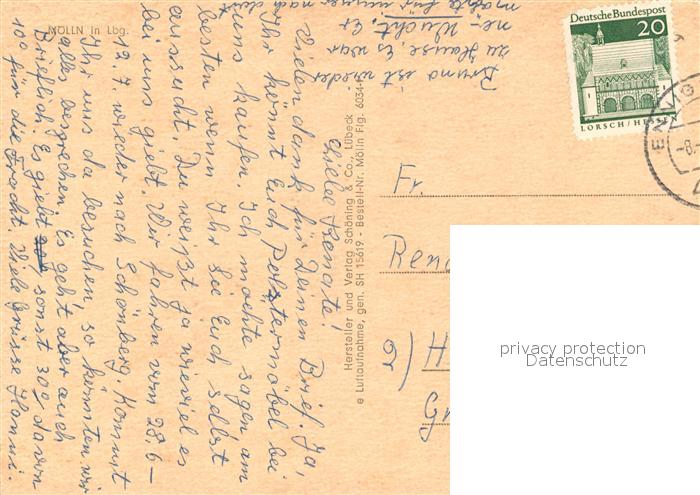 MÖLLN in Lbg.
Liebe Renate!
Vielen dank für Deinen Brief. Ja,
Ihr könnt Euch Polstermöbel bei
uns kaufen. Ich möchte sagen am
besten wenn Ihr Sie Euch selbst
aussucht. Du weißt ja wieviel es
bei uns giebt. Wir fahren vom 28.6-
12.7. wieder nach Schönberg. Kommt
Ihr uns da besuchen so könnten wir
alles besprechen. Es geht aber auch
Brieflich. Es giebt sonst 30% davon
10% für die Fracht. Viele Grüsse Hanni.
Bruno ist wieder
zu Hause. Es war
ne-Wucht. Er
möchte für immer nach dort
Hersteller und Verlag Schöning & Co., Lübeck
e Luftaufnahme, gen. SH 15619 - Bestell-Nr. Mölln Ffg. 6034-
Deutsche Bundespost
20
LORSCH/HESSEN
-8.-
Fr.
Rena
2) H
Gr
privacy protection
Datenschutz